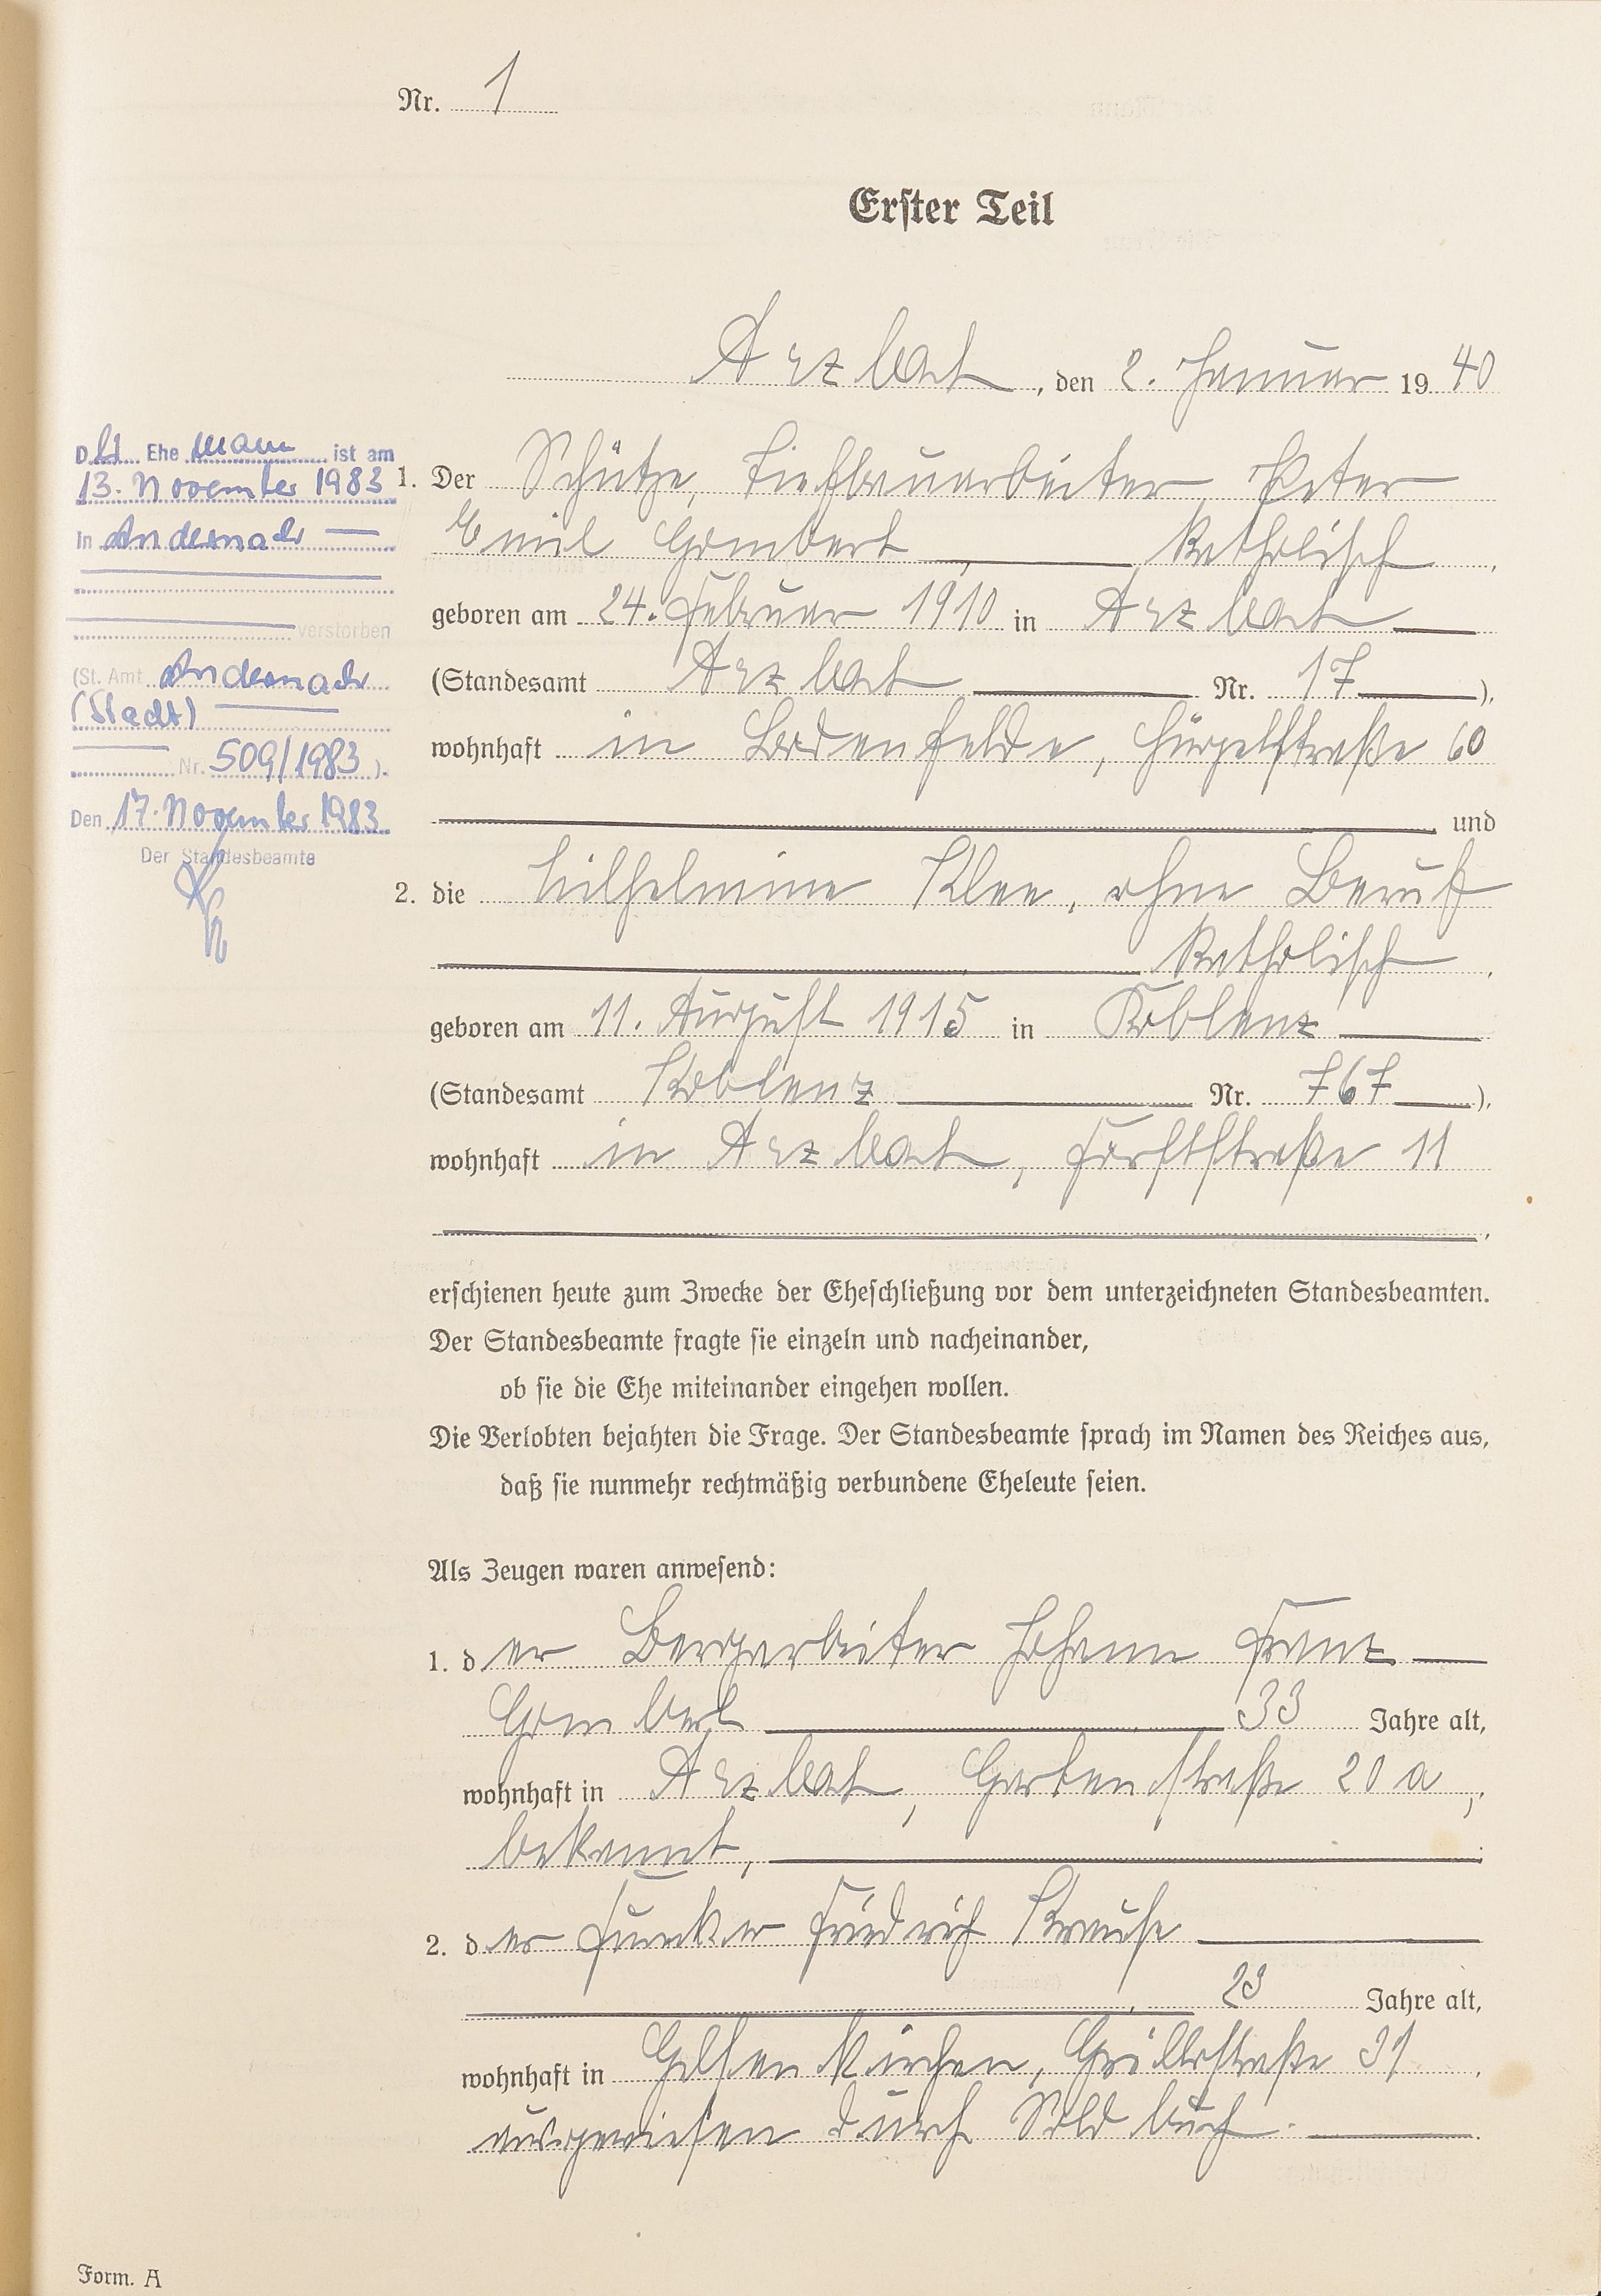 Nr. 1
Erster Teil
Arzbach, den 2. Januar 1940
1. Der Schütze, Tiefbauarbeiter Peter
Emil Gombert, katholisch,
geboren am 24. Februar 1910 in Arzbach
(Standesamt Arzbach Nr. 17),
wohnhaft in Bodenfelde, Hügelstraße 60
und
2. die Wilhelmine Klee, ohne Beruf
katholisch,
geboren am 11. August 1915 in Koblenz
(Standesamt Koblenz Nr. 767),
wohnhaft in Arzbach, Forststraße 11
erschienen heute zum Zwecke der Eheschließung vor dem unterzeichneten Standesbeamten.
Der Standesbeamte fragte sie einzeln und nacheinander,
ob sie die Ehe miteinander eingehen wollen.
Die Verlobten bejahten die Frage. Der Standesbeamte sprach im Namen des Reiches aus,
daß sie nunmehr rechtmäßig verbundene Eheleute seien.
Als Zeugen waren anwesend:
1. der Bergarbeiter Johann Franz
Gombert 33 Jahre alt,
wohnhaft in Arzbach, Gartenstraße 20 a,
bekannt,
2. der Funker Friedrich Krause
23 Jahre alt,
wohnhaft in Gelsenkirchen, Grillostraße 31,
ausgewiesen durch Soldbuch.
Der Ehemann ist am
13. November 1983
in Andernach
verstorben
(St. Amt Andernach
(Stadt)
Nr. 509/1983).
Den 17. November 1983
Der Standesbeamte
Form. A